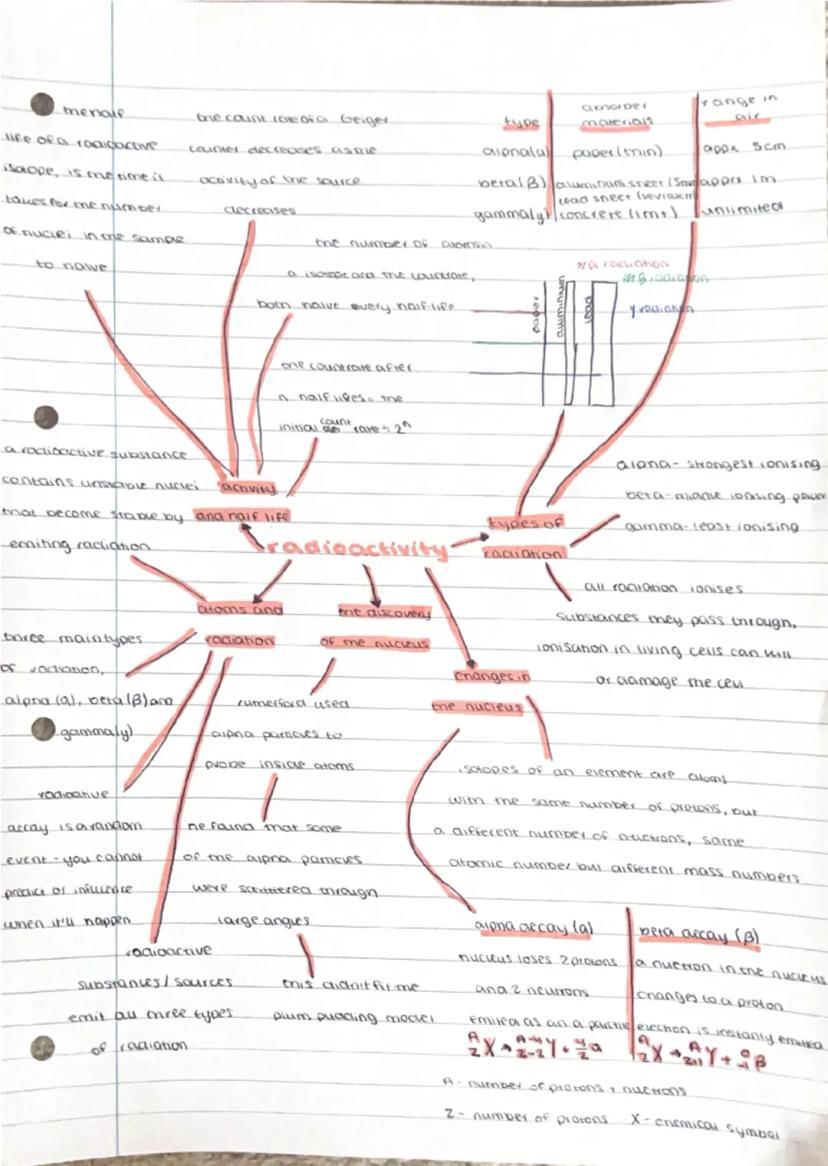 the half
life of a radioactive
isotope, is the time it
takes for the number
of nuclei in the sample
to halve
the count rate of a Geiger
counter decreases as the
activity of the source
decreases
the number of atoms in
a isotope and the count rate,
both halve every half-life
the count rate after
n half lifes = the
initial count rate ÷ 2ⁿ
type
absorber
materials
range in
air
alpha(α)
paper (thin)
appx 5cm
beta(β)
aluminium sheet (5mm)
apprx 1m
gamma(γ)
lead sheet (several cm)
concrete (1m+)
unlimited
α radiation
β radiation
γ radiation
paper
aluminium
lead
a radioactive substance
contains unstable nuclei
that become stable by
emitting radiation
activity
and half life
radioactivity
types of
radiation
alpha - strongest ionising
beta - middle ionising power
gamma - least ionising
all radiation ionises
substances they pass through,
ionisation in living cells can kill
or damage the cell
atoms and
radiation
the discovery
of the nucleus
changes in
the nucleus
three main types
of radiation,
alpha (α), beta (β) and
gamma(γ)
radioative
decay is a random
event - you cannot
predict or influence
when it'll happen
radioactive
substances / sources
emit all three types
of radiation
rutherford used
alpha particles to
probe inside atoms
he found that some
of the alpha particles
were scattered through
large angles
this didn't fit the
plum pudding model
isotopes of an element are atoms
with the same number of protons, but
a different number of nuctrons, same
atomic number but different mass numbers
alpha decay (α)
nucleus loses 2 protons
and 2 neutrons
emitted as an α particle
A Z X → A-4 Z-2 Y + 4 2 α
beta decay (β)
a nuctron in the nucleus
changes to a proton
electron is instantly emitted
A Z X → A Z+1 Y + 0 -1 β
A - number of protons + nuctrons
Z - number of protons X - chemical symbol